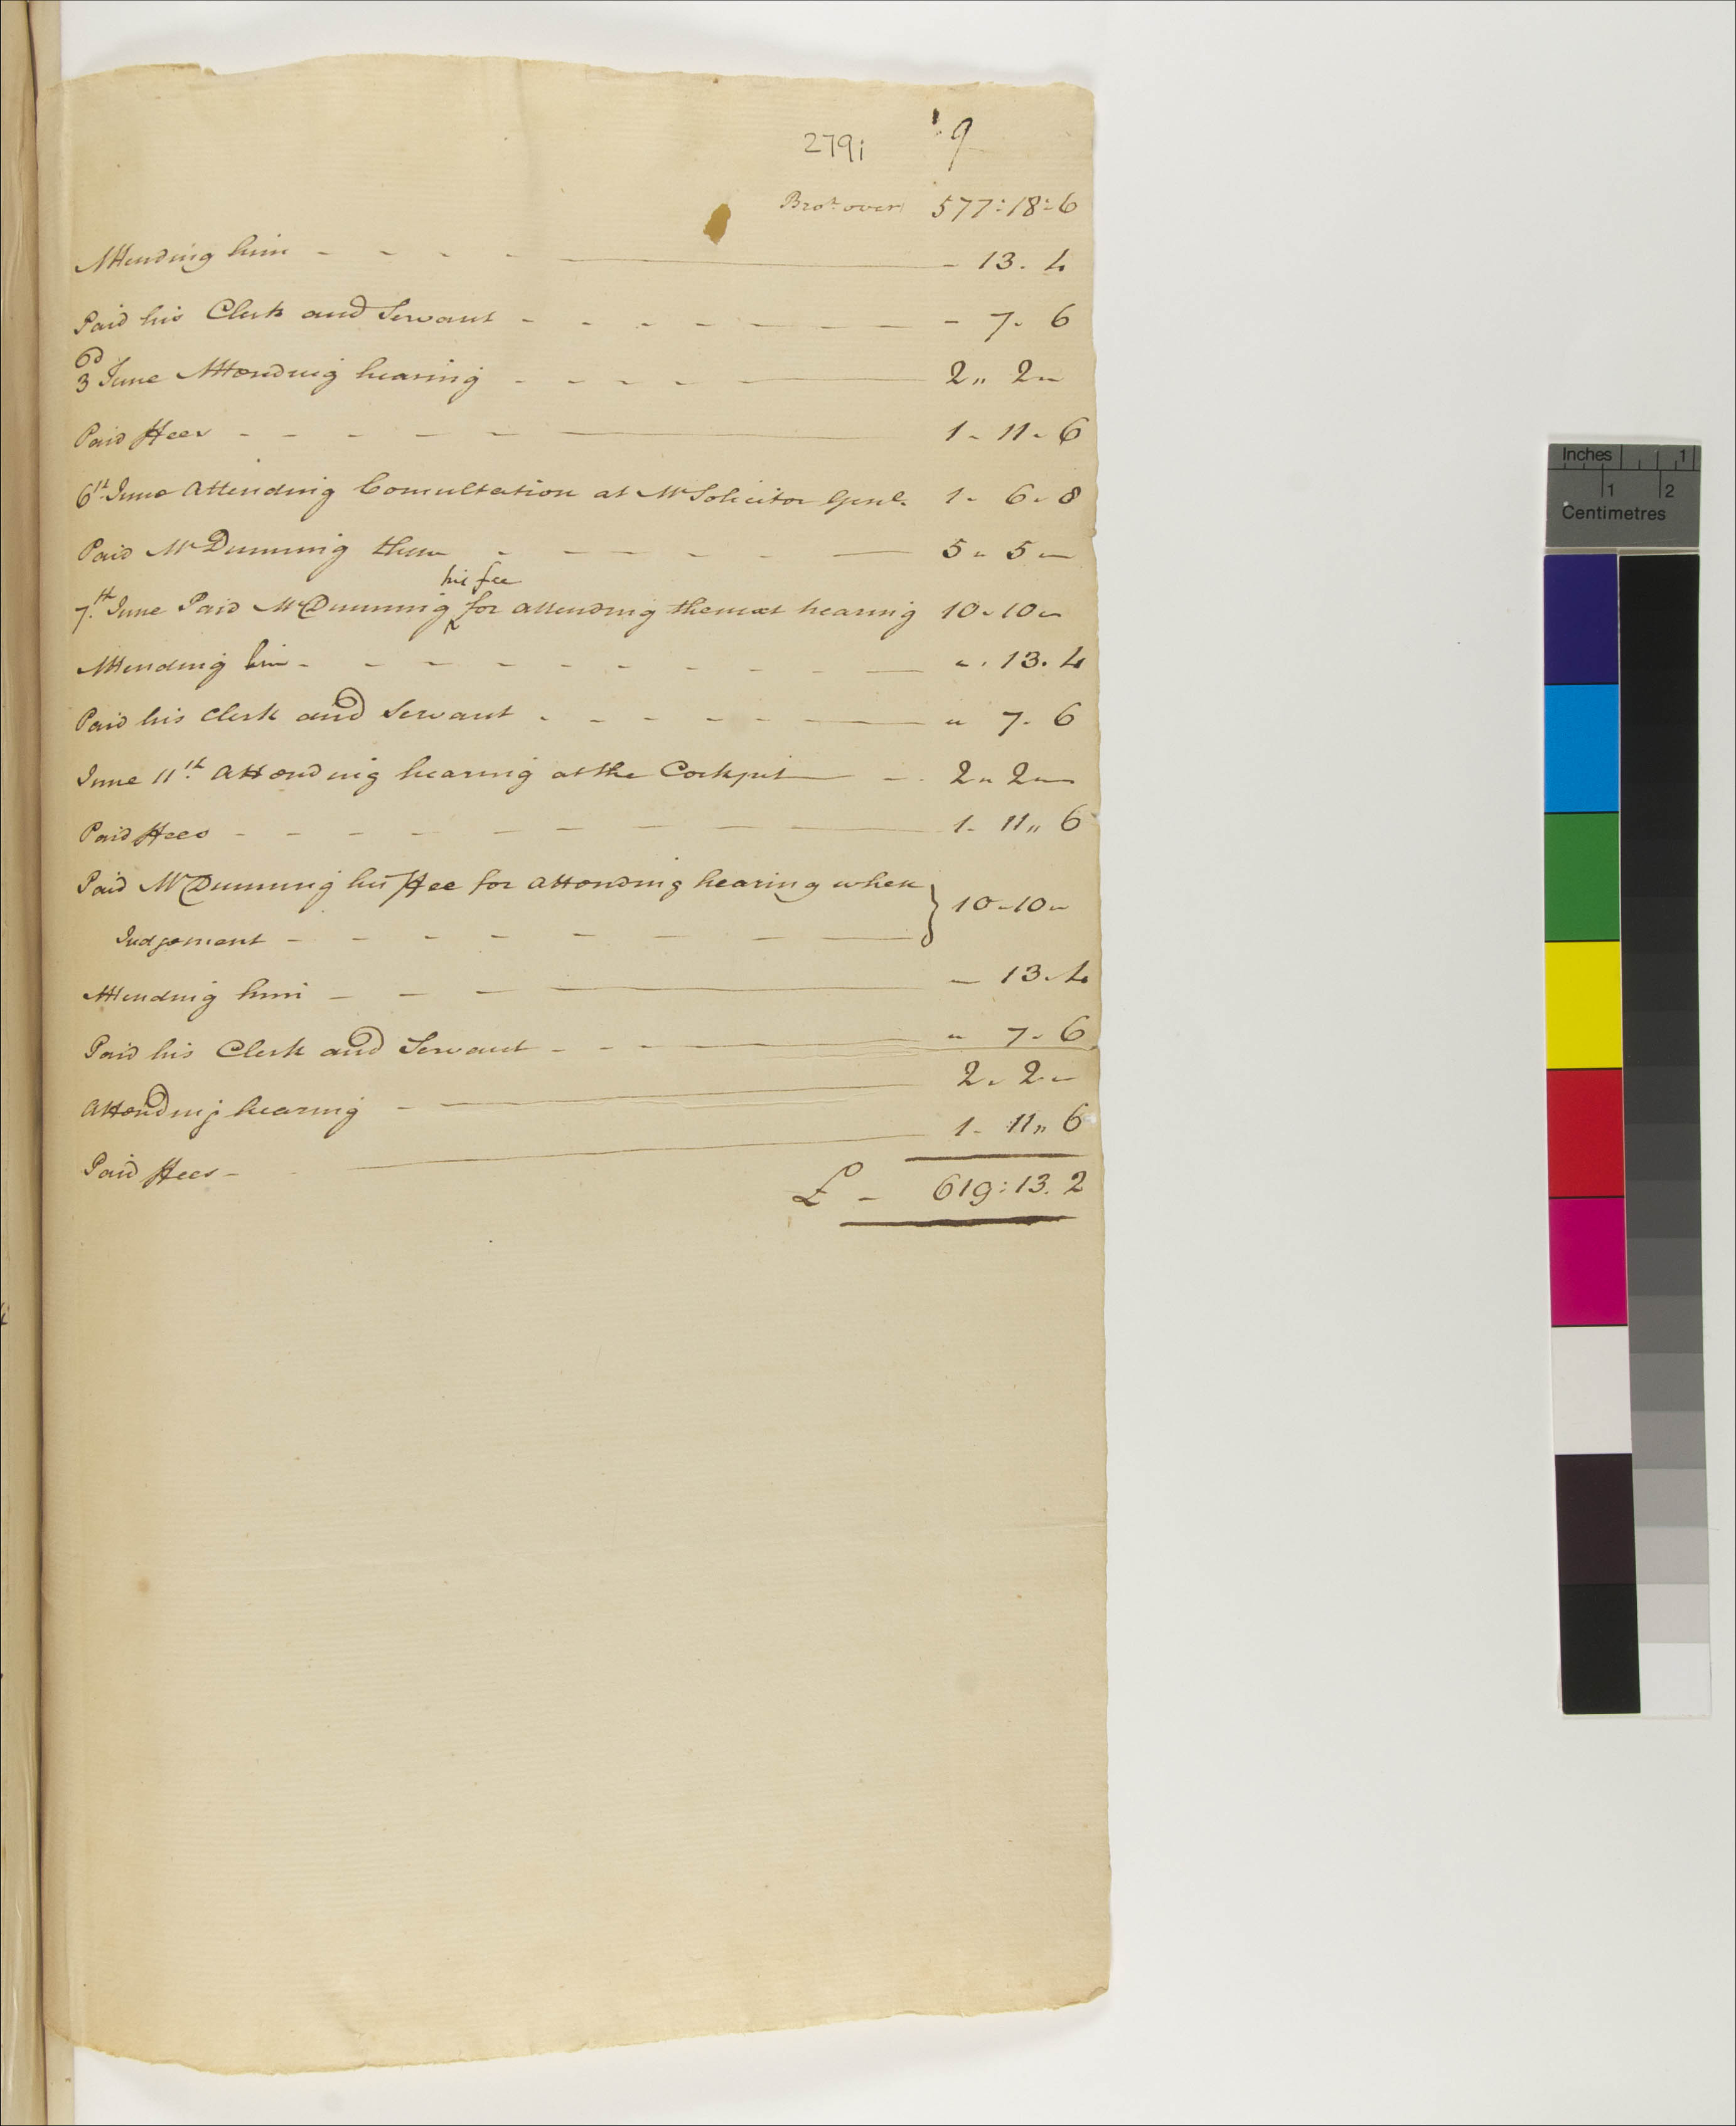 279i 9
Brot. over 577:18:6
Attending him - - - - - 13. 4
Paid his Clerk and Servant - - - - - - - 7. 6
3d June Attending hearing - - - - - 2,, 2,,-
Paid ffees - - - - - 1- 11- 6
6th June Attending Consultation at Mr Solicitor Genl. 1- 6- 8
Paid Mr Dunning then - - - - - - 5,, 5,,-
his fee
7th June Paid Mr Dunning ^ for attending the next hearing 10,, 10,,-
Attending him - - - - - - - - - ,,. 13. 4
Paid his Clerk and Servant - - - - - - ,, 7. 6
June 11th. Attending hearing at the Cockpit - - 2,, 2,,-
Paid ffees - - - - - - - - 1- 11,, 6
Paid Mr Dunning his ffee for attending hearing when } 10-10,,
Judgement - - - - - - -
Attending him - - - - - 13. 4
Paid his Clerk and Servant - - - ,, 7- 6
Attending hearing - - 2,, 2,,-
Paid ffees - - 1- 11,, 6
£ - 619:13. 2
Inches 1
1 2
Centimetres